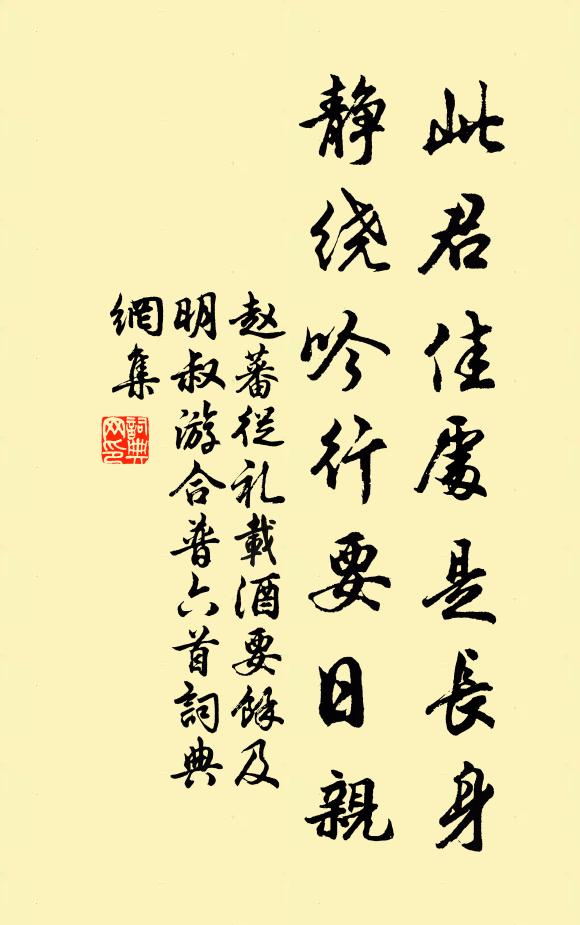 此君佳處是長身
静绕吟行要日親
赵蕃從礼載酒要餘及
明叔游合普六首詞典
網集
詞典
网印